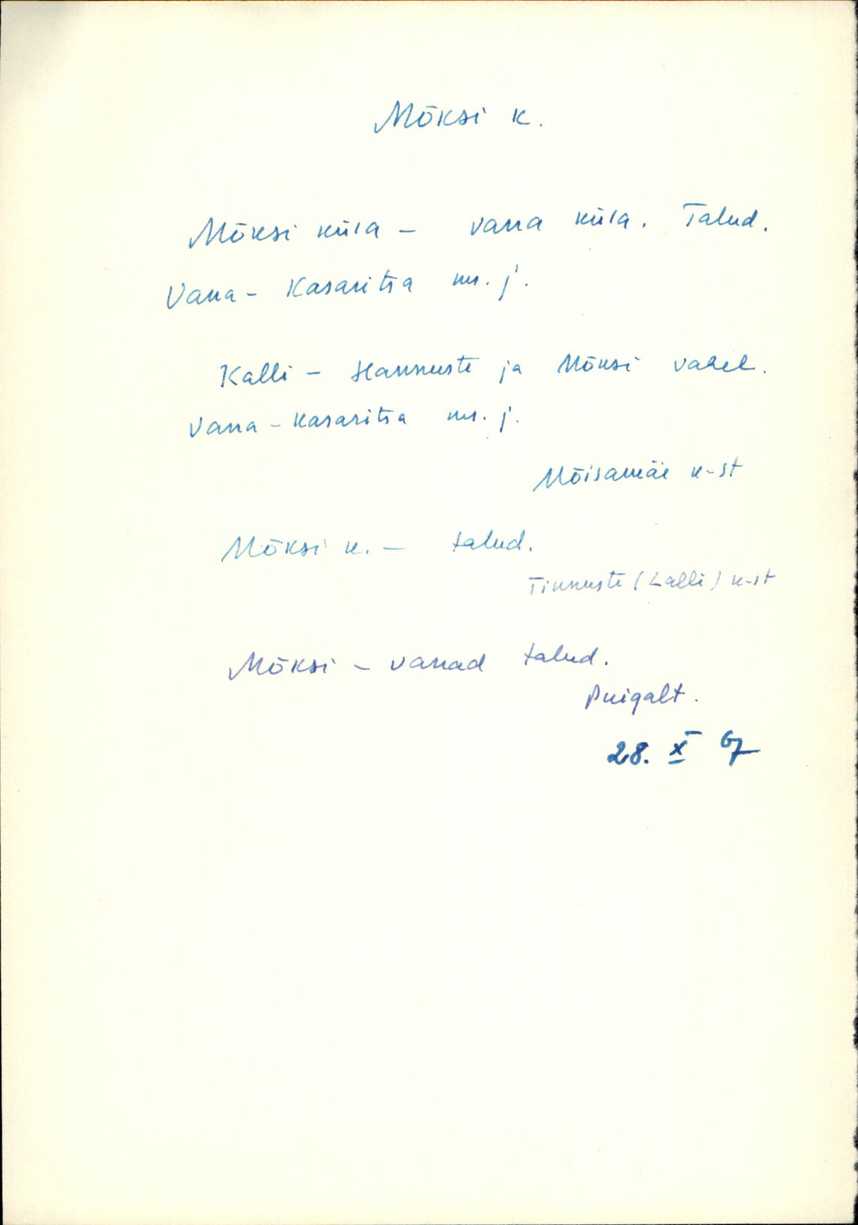 Mõksi k.
Mõksi küla - vana küla. Talud.
Vana-Kasaritsa ms. j.
Kalli - Hannuste ja Mõksi vahel.
Vana-Kasaritsa ms. j.
Mõisamäe k-st
Mõksi k. - talud.
Tinnuste (Lalli) k-st
Mõksi - vanad talud.
Puigalt.
28. X 67